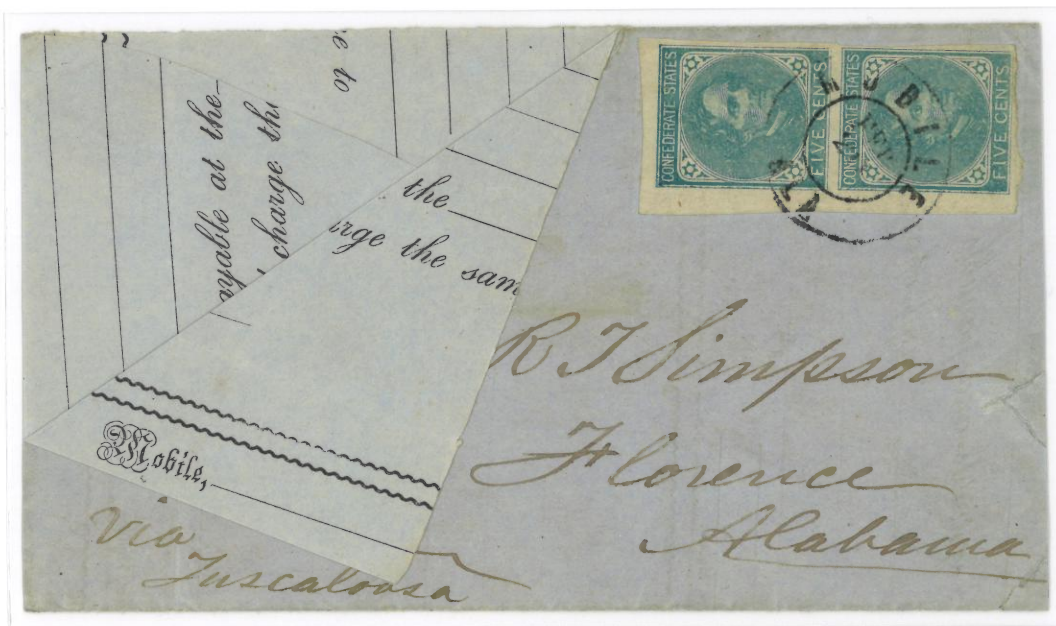 e to
ayable at the
charge the
the
arge the sam
Mobile,
CONFEDERATE STATES
FIVE CENTS
CONFEDERATE STATES
FIVE CENTS
MOBILE
ALA
R T Simpson
Florence
Alabama
Via
Tuscaloosa